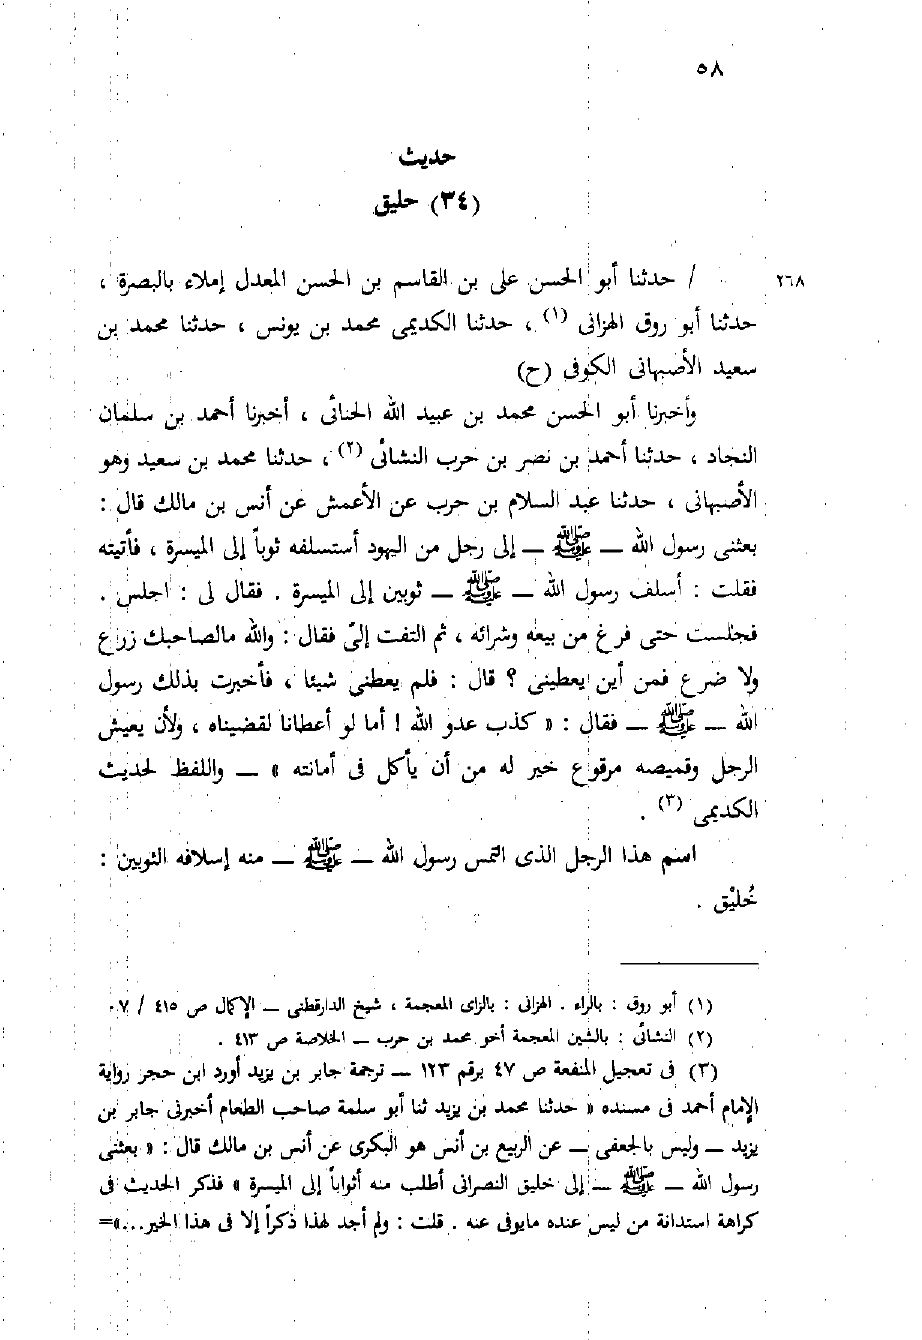 ٥٨
حديث
(٣٤) حليق
٢٦٨ / حدثنا أبو الحسن على بن القاسم بن الحسن المعدل إملاء بالبصرة ،
حدثنا أبو روق الهزانى (١) ، حدثنا الكديمى محمد بن يونس ، حدثنا محمد بن
سعيد الأصبهانى الكوفى (ح)
وأخبرنا أبو الحسن محمد بن عبيد الله الحنائى ، أخبرنا أحمد بن سلمان
النجاد ، حدثنا أحمد بن نصر بن حرب النشائى (٢) ، حدثنا محمد بن سعيد وهو
الأصبهانى ، حدثنا عبد السلام بن حرب عن الأعمش عن أنس بن مالك قال :
بعثنى رسول الله ــ ﷺ ــ إلى رجل من اليهود أستسلفه ثوباً إلى الميسرة ، فأتيته
فقلت : أسلف رسول الله ــ ﷺ ــ ثوبين إلى الميسرة . فقال لى : اجلس .
فجلست حتى فرغ من بيعه وشرائه ، ثم التفت إلىّ فقال : والله مالصاحبك زرع
ولا ضرع فمن أين يعطينى ؟ قال : فلم يعطنى شيئا ، فأخبرت بذلك رسول
الله ــ ﷺ ــ فقال : « كذب عدو الله ! أما لو أعطانا لقضيناه ، ولأن يعيش
الرجل وقميصه مرقوع خير له من أن يأكل فى أمانته » ــ واللفظ لحديث
الكديمى (٣) .
اسم هذا الرجل الذى التمس رسول الله ــ ﷺ ــ منه إسلافه الثوبين :
خُليْق .
(١) أبو روق : بالراء . الهزانى : بالزاى المعجمة ، شيخ الدارقطنى ــ الإكمال ص ٤١٥ / ٧.
(٢) النشائى : بالشين المعجمة أخو محمد بن حرب ــ الخلاصة ص ٤١٣ .
(٣) فى تعجيل المنفعة ص ٤٧ برقم ١٢٣ ــ ترجمة جابر بن يزيد أورد ابن حجر رواية
الإمام أحمد فى مسنده « حدثنا محمد بن يزيد ثنا أبو سلمة صاحب الطعام أخبرنى جابر بن
يزيد ــ وليس بالجعفى ــ عن الربيع بن أنس هو البكرى عن أنس بن مالك قال : « بعثنى
رسول الله ــ ﷺ ــ إلى خليق النصرانى أطلب منه أثواباً إلى الميسرة » فذكر الحديث فى
كراهة استدانة من ليس عنده مايوفى عنه . قلت : ولم أجد لهذا ذكراً إلا فى هذا الخبر...»=